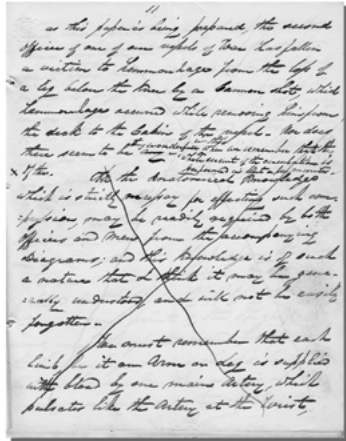 11
as this paper is being prepared, the second
officer of one of our vessels of War has fallen
a victim to hemmorhage from the loss of
a leg below the knee by a Cannon shot, which
hemmorhage occured while removing him from
the deck to the Cabin of the vessel. Nor does
there seem to be any wonder when we remember that the
amount of the circulation is
performed in but a few minutes.
x If the. All the Anatomical Knowledge
which is strictly necessary for effecting such com-
pression, may be readily acquired by both
officers and men from the accompanying
diagrams; and this Knowledge is of such
a nature that I think it may be gene-
rally understood and will not be easily
forgotten.
You must remember that each
limb be it an Arm or Leg is supplied
with blood by one main Artery, which
pulsates like the Artery at the Wrist,